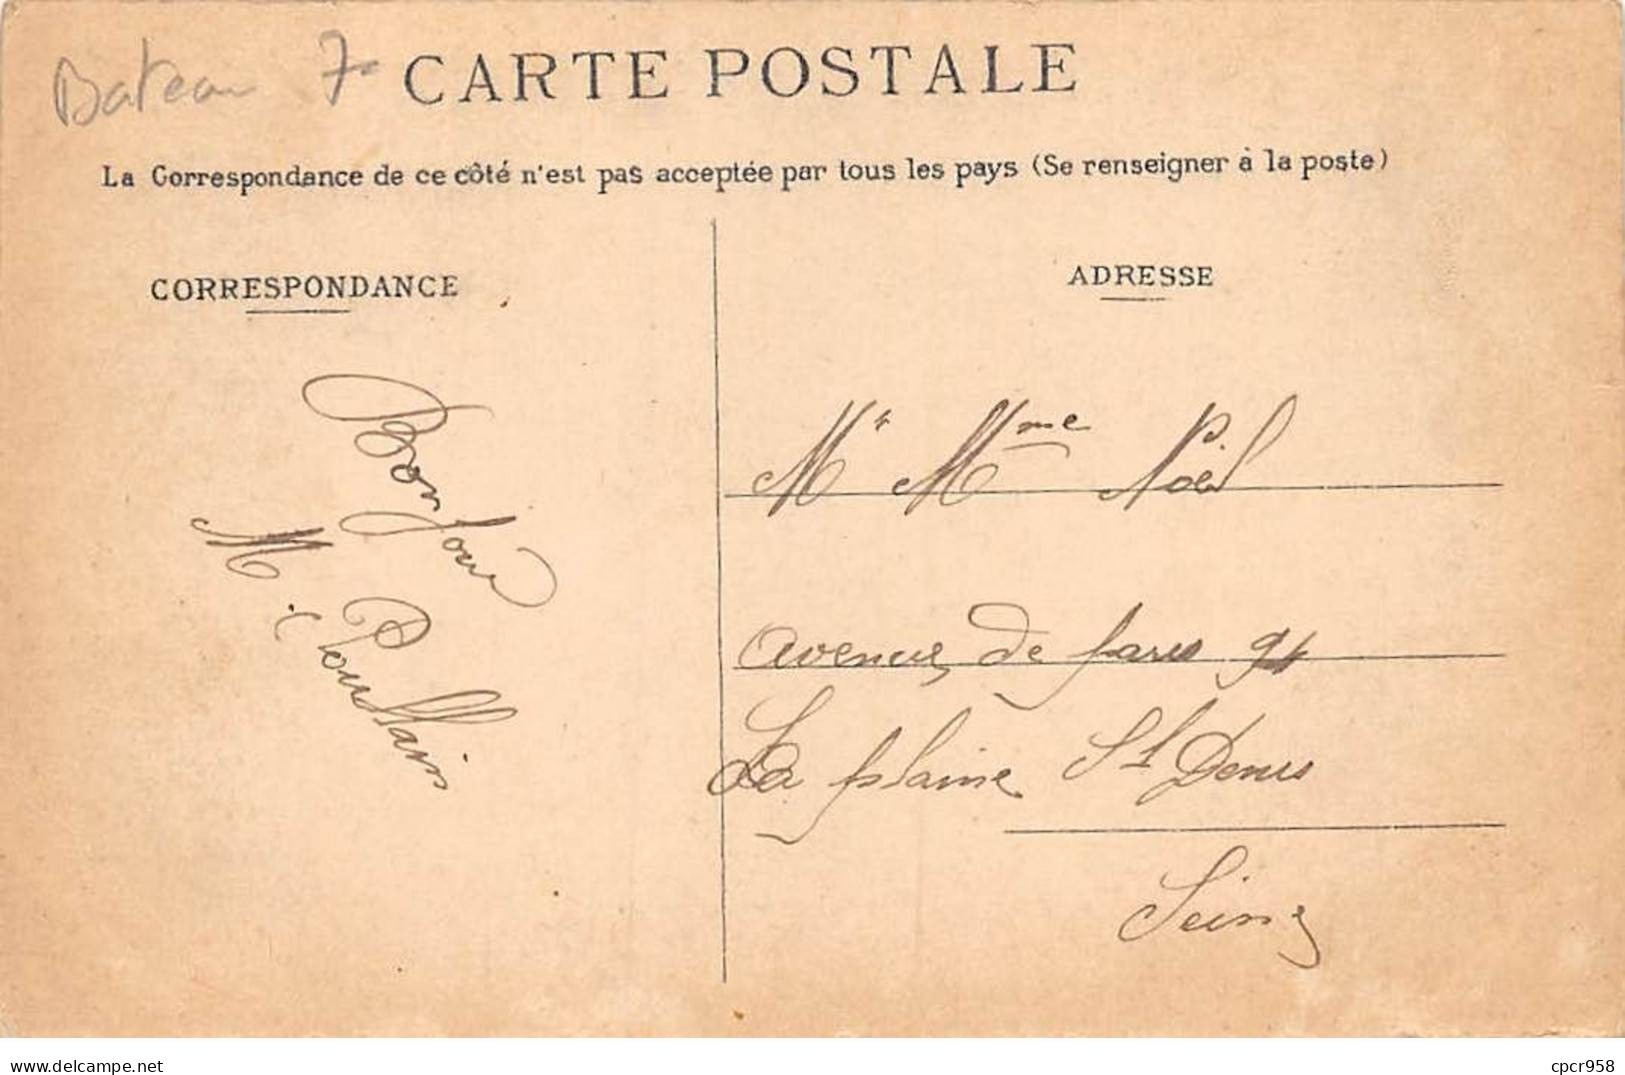 Bateau 7-
CARTE POSTALE
La Correspondance de ce côté n'est pas acceptée par tous les pays (Se renseigner à la poste)
CORRESPONDANCE
Bonjour
M. Poullain
ADRESSE
Mr Mme Noël
avenue de Paris 94
La plaine St Denis
Seine
www.delcampe.net
cpcr958